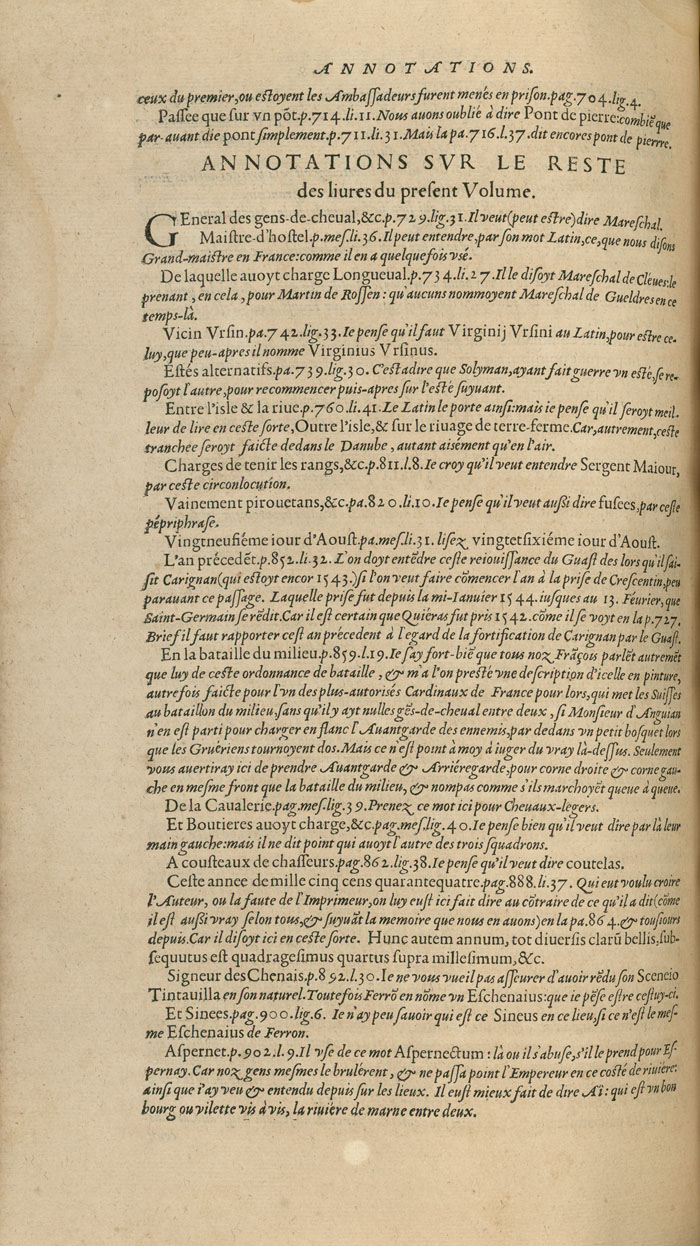 ANNOTATIONS.
ceux du premier, ou eſtoyent les Ambaſſadeurs furent menés en priſon. pag. 704. lig. 4.
Paſſee que ſur vn põt. p. 714. li. 11. Nous auons oublié à dire Pont de pierre: combiẽ que
par-auant die pont ſimplement. p. 711. li. 31. Mais la pa. 716. l. 37. dit encores pont de pierre.
ANNOTATIONS SVR LE RESTE
des liures du preſent Volume.
GEneral des gens-de-cheual, &c. p. 729. lig. 31. Il veut (peut eſtre) dire Mareſchal.
Maiſtre-d'hoſtel. p. meſ. li. 36. Il peut entendre, par ſon mot Latin, ce, que nous diſons
Grand-maiſtre en France: comme il en a quelquefois vsé.
De laquelle auoyt charge Longueual. p. 734. li. 27. Il le diſoyt Mareſchal de Cleues: le
prenant, en cela, pour Martin de Roſſen: qu'aucuns nommoyent Mareſchal de Gueldres en ce
temps-là.
Vicin Vrſin. pa. 742. lig. 33. Ie penſe qu'il faut Virginij Vrſini au Latin, pour eſtre ce-
luy, que peu-apres il nomme Virginius Vrſinus.
Eſtés alternatifs. pa. 739. lig. 30. C'eſt adire que Solyman, ayant fait guerre vn eſté, ſe re-
poſoyt l'autre, pour recommencer puis-apres ſur l'eſté ſuyuant.
Entre l'isle & la riue. p. 760. li. 41. Le Latin le porte ainſi: mais ie penſe qu'il ſeroyt meil-
leur de lire en ceſte ſorte, Outre l'isle, & ſur le riuage de terre-ferme. Car, autrement, ceſte
tranchee ſeroyt faicte dedans le Danube, autant aisément qu'en l'air.
Charges de tenir les rangs, &c. p. 811. l. 8. Ie croy qu'il veut entendre Sergent Maiour,
par ceſte circonlocution.
Vainement pirouetans, &c. pa. 820. li. 10. Ie penſe qu'il veut auſsi dire fuſees, par ceſte
pépriphraſe.
Vingtneufiéme iour d'Aouſt. pa. meſ. li. 31. liſez vingtetſixiéme iour d'Aouſt.
L'an précedẽt. p. 852. li. 32. L'on doyt entẽdre ceſte reiouiſſance du Guaſt des lors qu'il ſai-
ſit Carignan (qui eſtoyt encor 1543.) ſi l'on veut faire cõmencer l'an à la priſe de Creſcentin, peu
parauant ce paſſage. Laquelle priſe fut depuis la mi-Ianuier 1544. iuſques au 13. Féurier, que
Saint-Germain ſe rẽdit. Car il eſt certain que Quieras fut pris 1542. cõme il ſe voyt en la p. 727.
Brief il faut rapporter ceſt an precedent à l'egard de la fortification de Carignan par le Guaſt.
En la bataille du milieu. p. 859. l. 19. Ie ſay fort-biẽ que tous noz Frãçois parlẽt autremẽt
que luy de ceſte ordonnance de bataille, & m'a l'on preſté vne deſcription d'icelle en pinture,
autrefois faicte pour l'vn des plus-autorisés Cardinaux de France pour lors, qui met les Suiſſes
au bataillon du milieu, ſans qu'il y ayt nulles gẽs-de-cheual entre deux, ſi Monſieur d'Anguian
n'en eſt parti pour charger en flanc l'Auantgarde des ennemis, par dedans vn petit boſquet lors
que les Gruériens tournoyent dos. Mais ce n'eſt point à moy à iuger du vray là-deſſus. Seulement
vous auertiray ici de prendre Auantgarde & Arriéregarde, pour corne droite & corne gau-
che en meſme front que la bataille du milieu, & nompas comme s'ils marchoyẽt queue à queue.
De la Caualerie. pag. meſ. lig. 39. Prenez ce mot ici pour Cheuaux-legers.
Et Boutieres auoyt charge, &c. pag. meſ. lig. 40. Ie penſe bien qu'il veut dire par là leur
main gauche: mais il ne dit point qui auoyt l'autre des trois ſquadrons.
A couſteaux de chaſſeurs. pag. 862. lig. 38. Ie penſe qu'il veut dire coutelas.
Ceſte annee de mille cinq cens quarantequatre. pag. 888. li. 37. Qui eut voulu croire
l'Auteur, ou la faute de l'Imprimeur, on luy euſt ici fait dire au cõtraire de ce qu'il a dit (cõme
il eſt auſsi vray ſelon tous, & ſuyuãt la memoire que nous en auons) en la pa. 864. & touſiours
depuis. Car il diſoyt ici en ceſte ſorte. Hunc autem annum, tot diuerſis clarũ bellis, ſub-
ſequutus eſt quadrageſimus quartus ſupra milleſimum, &c.
Signeur des Chenais. p. 892. l. 30. Ie ne vous vueil pas aſſeurer d'auoir rẽdu ſon Scencio
Tintauilla en ſon naturel. Toutefois Ferrõ en nõme vn Eſchenaius: que ie pẽſe eſtre ceſtuy-ci.
Et Sinees. pag. 900. lig. 6. Ie n'ay peu ſauoir qui eſt ce Sineus en ce lieu, ſi ce n'eſt le meſ-
me Eſchenaius de Ferron.
Aſpernet. p. 902. l. 9. Il vſe de ce mot Aſpernectum: là ou il s'abuſe, s'il le prend pour Eſ-
pernay. Car noz gens meſmes le brulérent, & ne paſſa point l'Empereur en ce coſté de riuiére:
ainſi que i'ay veu & entendu depuis ſur les lieux. Il euſt mieux fait de dire Aï: qui eſt vn bon
bourg ou vilette vis à vis, la riuiére de marne entre deux.